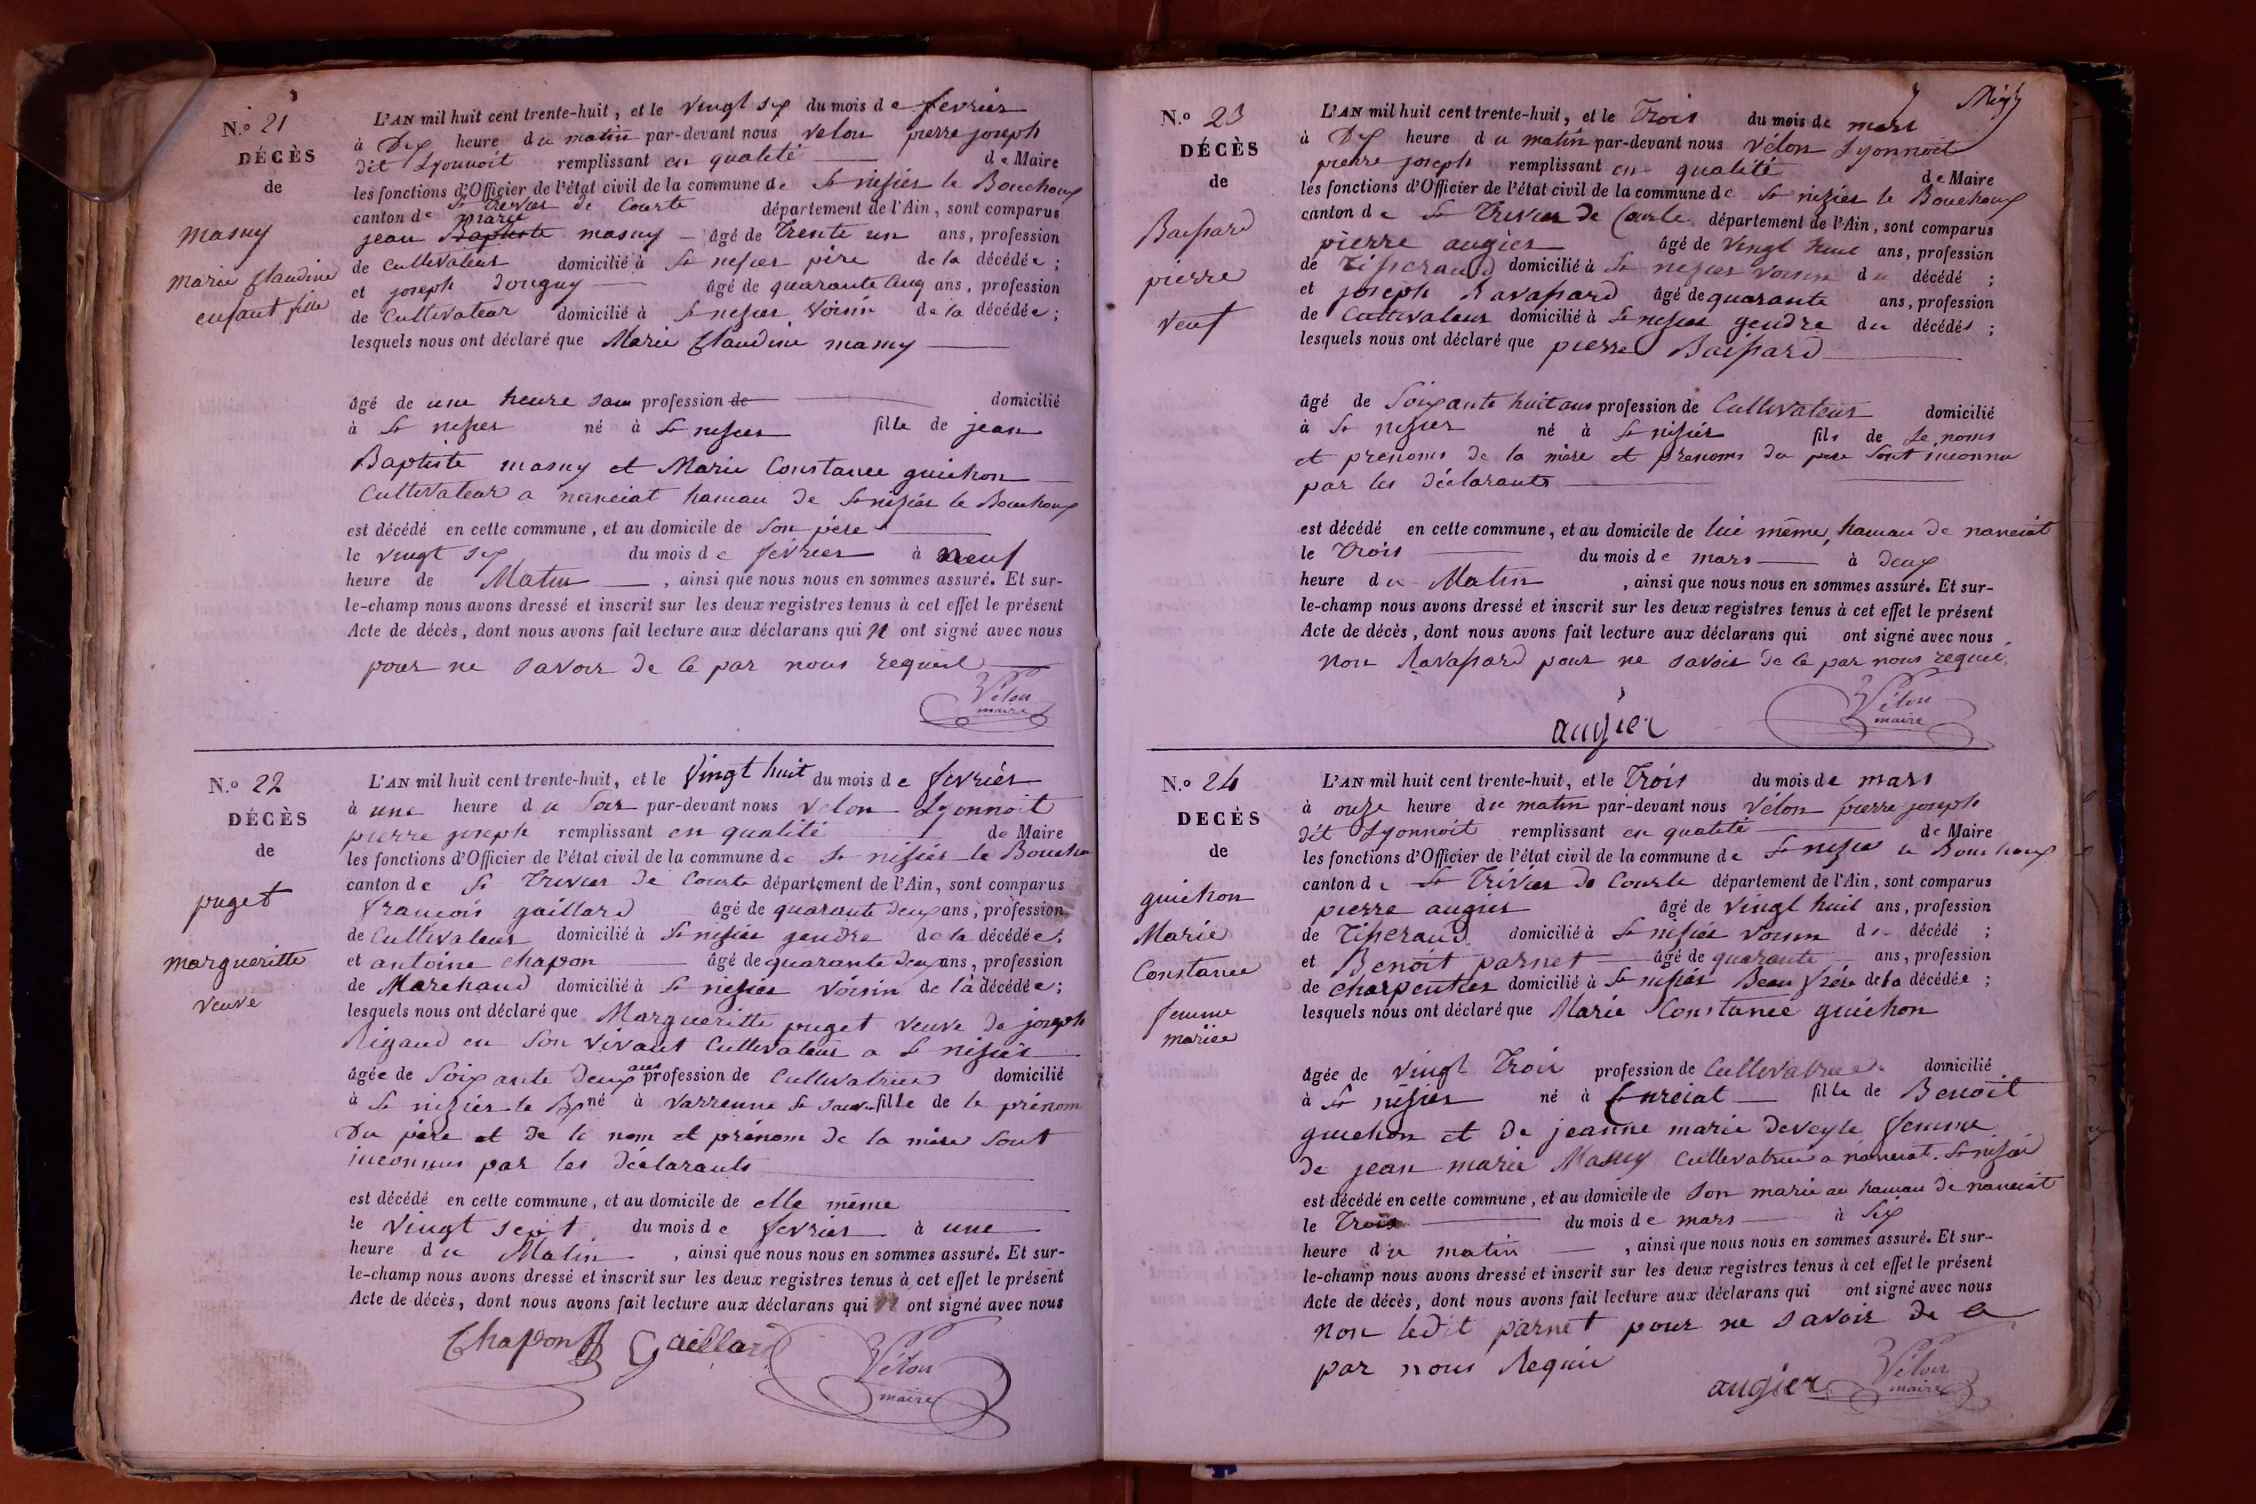 N.º 21
DÉCÈS
de
masuy
marie Claudine
enfant fille
L'AN mil huit cent trente-huit, et le vingt six du mois de fevrier
à Dix heure du matin par-devant nous velon pierre joseph
dit Lyonnoit remplissant en qualité de Maire
les fonctions d'Officier de l'état civil de la commune de St nisier le Bouchoux
canton de St Trivier de Courte département de l'Ain, sont comparus
marie
jean Baptiste masuy âgé de Trente un ans, profession
de Cultivateur domicilié à St nisier père de la décédée;
et joseph Dougny âgé de quarante Cinq ans, profession
de Cultivateur domicilié à St nisier Voisin de la décédée;
lesquels nous ont déclaré que Marie Claudine masuy
âgé de une heure sans profession de domicilié
à St nisier né à St nisier fille de jean
Baptiste masuy et Marie Constance guichon
Cultivateur a nanciat hameau de St nisier le Bouchoux
est décédé en cette commune, et au domicile de son père
le vingt six du mois de fevrier à neuf
heure de Matin, ainsi que nous nous en sommes assuré. Et sur-
le-champ nous avons dressé et inscrit sur les deux registres tenus à cet effet le présent
Acte de décès, dont nous avons fait lecture aux déclarans qui n ont signé avec nous
pour ne savoir de ce par nous requis
Vélon
maire
N.º 22
DÉCÈS
de
puget
margueritte
veuve
L'AN mil huit cent trente-huit, et le Vingt huit du mois de fevrier
à une heure du soir par-devant nous velon Lyonnoit
pierre joseph remplissant en qualité de Maire
les fonctions d'Officier de l'état civil de la commune de St nisier le Boucho
canton de St Trivier de Courte département de l'Ain, sont comparus
francois gaillard âgé de quarante deux ans, profession
de Cultivateur domicilié à St nisier gendre de la décédée;
et antoine chapon âgé de quarante deux ans, profession
de Marchand domicilié à St nisier Voisin de la décédée;
lesquels nous ont déclaré que Margueritte puget veuve de joseph
Rigaud en son vivant Cultivateur a St nisier
âgée de Soixante deux ans profession de Cultivatrice domicilié
à St nisier le Bx né à varrenne St sauv fille de le prénom
Du père et de le nom et prénom de la mère sont
inconnus par les déclarants
est décédé en cette commune, et au domicile de elle même
le vingt sept du mois de fevrier à une
heure du Matin, ainsi que nous nous en sommes assuré. Et sur-
le-champ nous avons dressé et inscrit sur les deux registres tenus à cet effet le présent
Acte de décès, dont nous avons fait lecture aux déclarans qui ont signé avec nous
Chapon Gaillard Vélon
maire
N.º 23
DÉCÈS
de
Baissard
pierre
veuf
L'AN mil huit cent trente-huit, et le Trois du mois de mars
à Dix heure du matin par-devant nous vélon Lyonnoit
pierre joseph remplissant en qualité de Maire
les fonctions d'Officier de l'état civil de la commune de St nizier le Bouchoux
canton de St Trivier de Courte département de l'Ain, sont comparus
pierre augier âgé de vingt huit ans, profession
de Tisserand domicilié à St nisier voisin du décédé;
et joseph Ravassard âgé de quarante ans, profession
de Cultivateur domicilié à St nisier gendre du décédé;
lesquels nous ont déclaré que pierre Baissard
âgé de Soixante huit ans profession de Cultivateur domicilié
à St nisier né à St nisier fils de Le noms
et prenoms de la mère et prenoms du père sont inconnu
par les déclarants
est décédé en cette commune, et au domicile de lui même, hameau de nanciat
le Trois du mois de mars à deux
heure du Matin, ainsi que nous nous en sommes assuré. Et sur-
le-champ nous avons dressé et inscrit sur les deux registres tenus à cet effet le présent
Acte de décès, dont nous avons fait lecture aux déclarans qui ont signé avec nous
non Ravassard pour ne savoir de ce par nous requis
Vélon
maire
augier
N.º 24
DECÈS
de
guichon
Marie
Constance
femme
mariée
L'AN mil huit cent trente-huit, et le Trois du mois de mars
à onze heure du matin par-devant nous vélon pierre joseph
dit Lyonnoit remplissant en qualité de Maire
les fonctions d'Officier de l'état civil de la commune de St nisier le Bouchoux
canton de St Trivier de Courte département de l'Ain, sont comparus
pierre augier âgé de vingt huit ans, profession
de Tisserand domicilié à St nisier voisin de décédé;
et Benoit parnet âgé de quarante ans, profession
de charpentier domicilié à St nisier Beau frère de la décédée;
lesquels nous ont déclaré que Marie Constance guichon
âgée de vingt Trois profession de Cultivatrice domicilié
à St nisier né à Curciat fille de Benoit
guichon et de jeanne marie deveyle femme
de jean marie Masuy Cultivatrice a nanciat. St nisier
est décédé en cette commune, et au domicile de son marie au hameau de nanciat
le Trois du mois de mars à Six
heure du matin, ainsi que nous nous en sommes assuré. Et sur-
le-champ nous avons dressé et inscrit sur les deux registres tenus à cet effet le présent
Acte de décès, dont nous avons fait lecture aux déclarans qui ont signé avec nous
non ledit parnet pour ne savoir de ce
par nous Requis
augier Vélon
maire